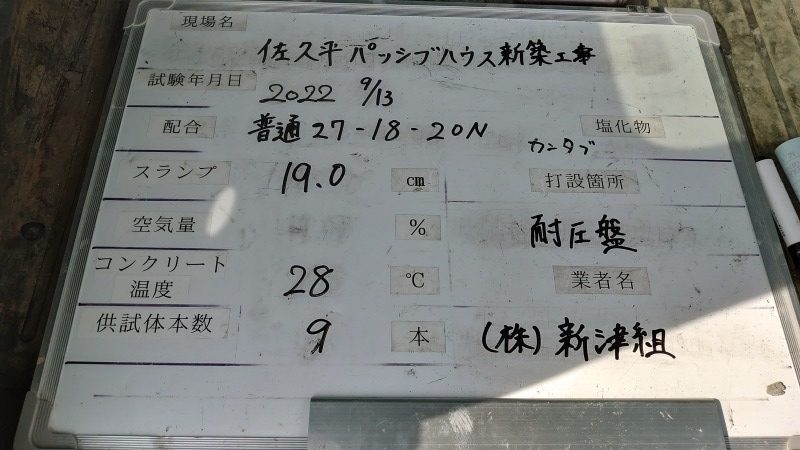 現場名
佐久平パッシブハウス新築工事
試験年月日 2022 9/13
配合 普通27-18-20N 塩化物
カンタブ
スランプ 19.0 cm 打設箇所
空気量 % 耐圧盤
コンクリート温度 28 ℃ 業者名
供試体本数 9 本 (株)新津組